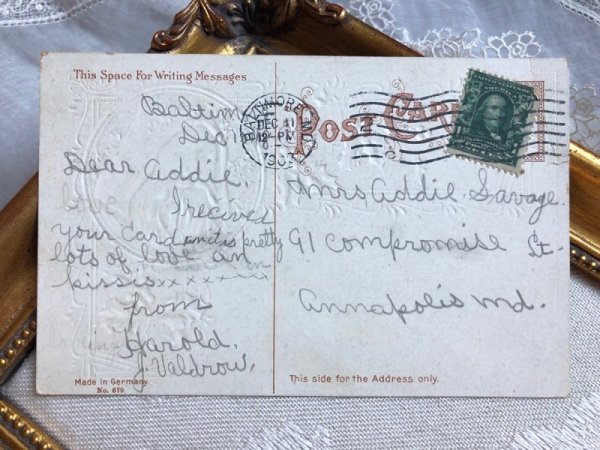 This Space For Writing Messages
Baltim
Dec 1
Dear Addie.
love I recived
your Card and it is pretty
lots of love an
kissisxxxxxxx
from
Harold.
J. Valdrow,
Made in Germany.
No. 879
POST CARD
BALTIMORE, MD.
DEC 11
12 - PM
190
Mrs Addie Savage.
91 Compromise St-
Annapolis Md.
This side for the Address only.